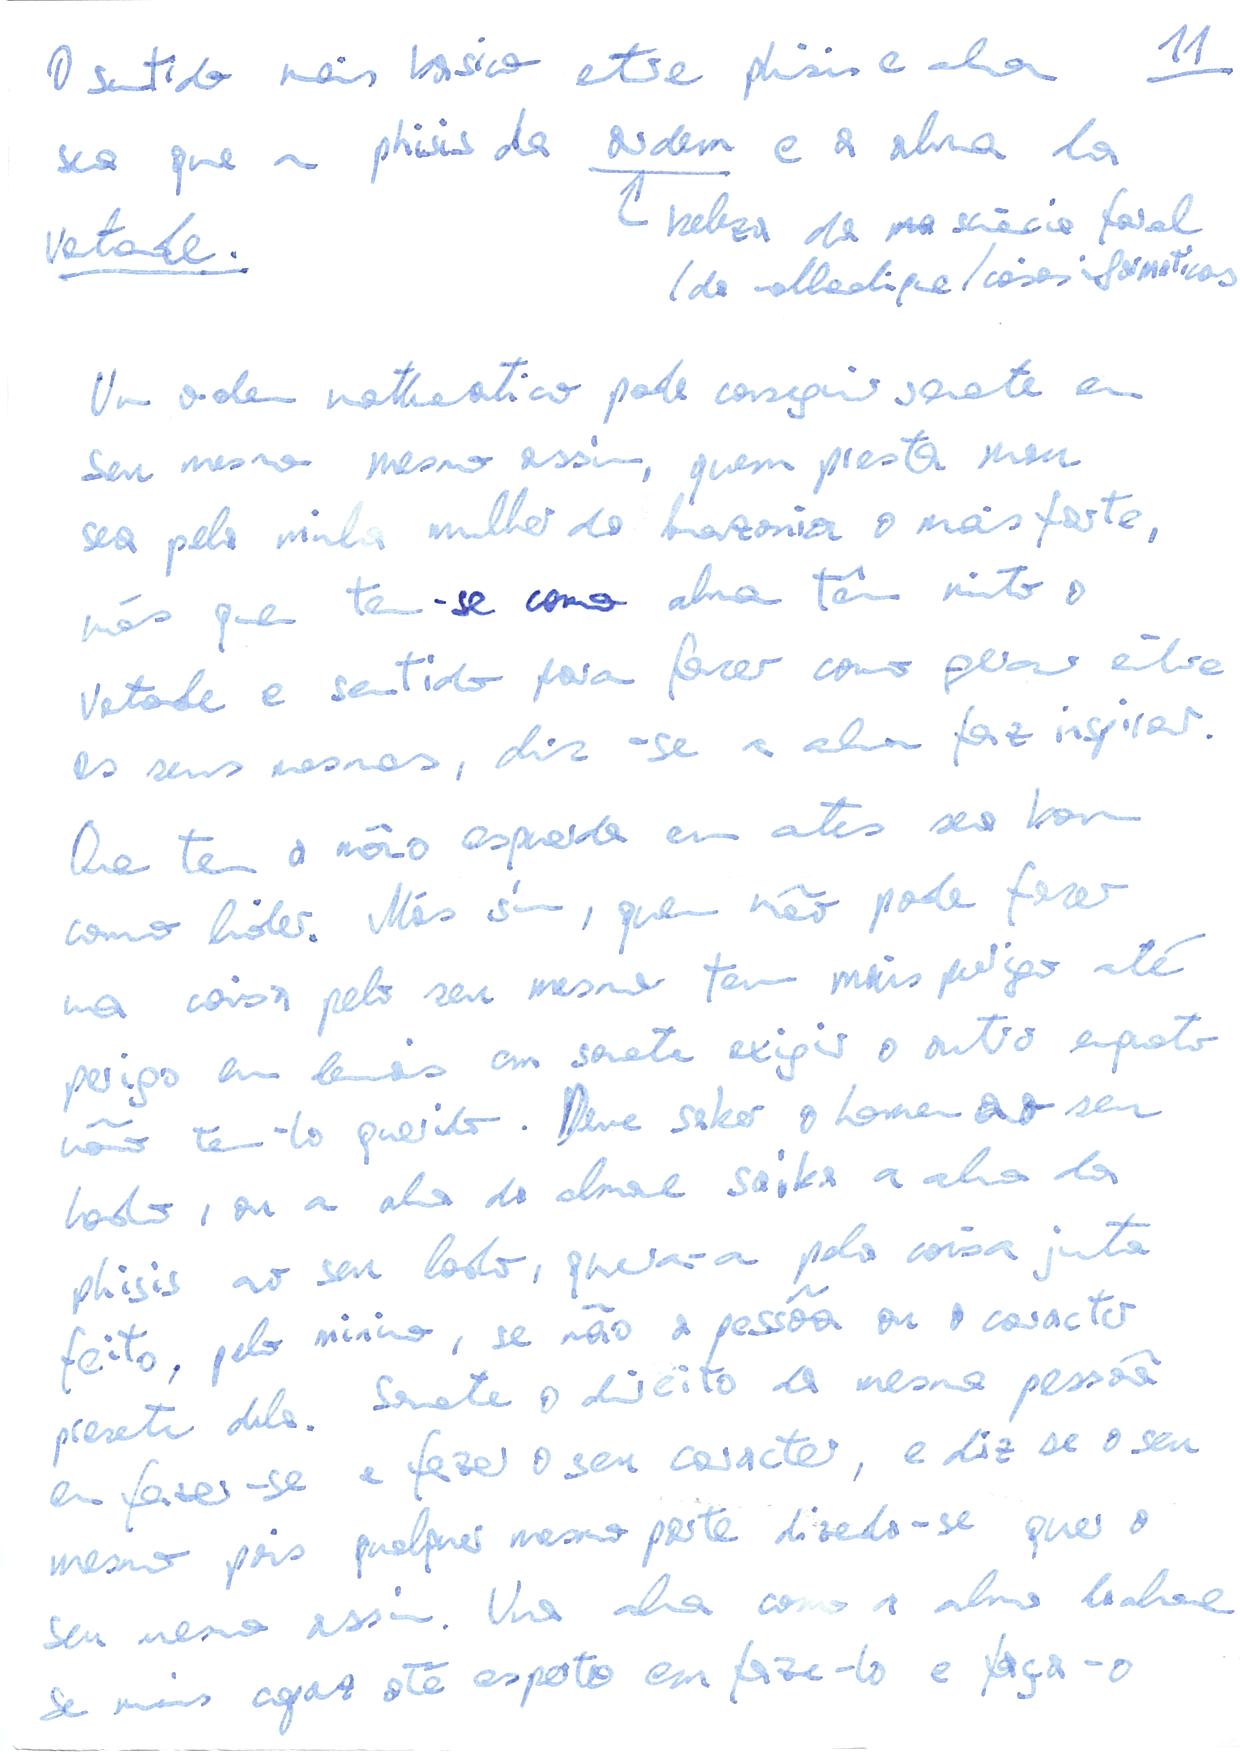 O sentido mais basico etre phisis e alma 11
sea que a phisis da ordem e a alma da
vetade.
beleza da ma sciêcia foral
Um ordem mathematico pode conseguir somete em
seu mesmo mesmo assim, quem presta meu
sea pelo minha mulher da Amazonia o mais forte,
más quem tem-se como alma têm mito o
vetade e sentido para fazer como gerar être
os seus mesmos, diz-se a alma faz inspirar.
Que tem a mão esquerda em ates sea bom
como lider. Más sim, quem não pode fazer
uma coisa pelo seu mesmo tem mais perigo até
perigo em demais em somete exigir o outro equato
não tem-lo querido. Deve saber o homem ao seu
lado, ou a alma da alma saiba a alma da
phisis ao seu lado, quera-a pela coisa juta
feito, pelo minimo, se não a pessõa ou o caracter
presete dela. Somete o direito da mesma pessõa
em fazer-se e fazer o seu caracter, e diz se o seu
mesmo pois qualquer mesmo parte dizedo-se quer o
seu mesmo assim. Uma alma como a alma
se mais capaz até esperto em faze-lo e faça-o